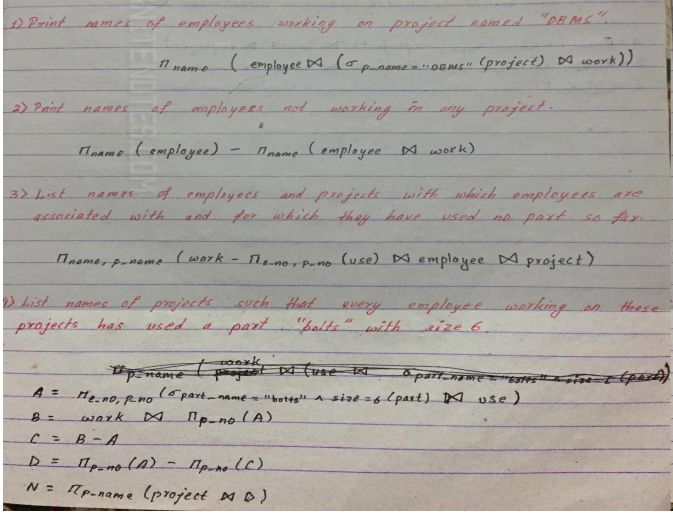 1) Print names of employees working on project named "DBMS".
π name ( employee ⋈ (σ p_name = "DBMS" (project) ⋈ work))
2) Print names of employees not working in any project.
π name (employee) - π name (employee ⋈ work)
3) List names of employees and projects with which employees are
associated with and for which they have used no part so far.
π name, p_name (work - π e_no, p_no (use) ⋈ employee ⋈ project)
List names of projects such that every employee working on these
projects has used a part "bolts" with size 6.
work
π p_name ( project ⋈ (use ⋈ σ part_name = "bolts" ∧ size = 6 (part))
A = π e_no, p_no (σ part_name = "bolts" ∧ size = 6 (part) ⋈ use)
B = work ⋈ π p_no (A)
C = B - A
D = π p_no (A) - π p_no (C)
N = π p_name (project ⋈ D)